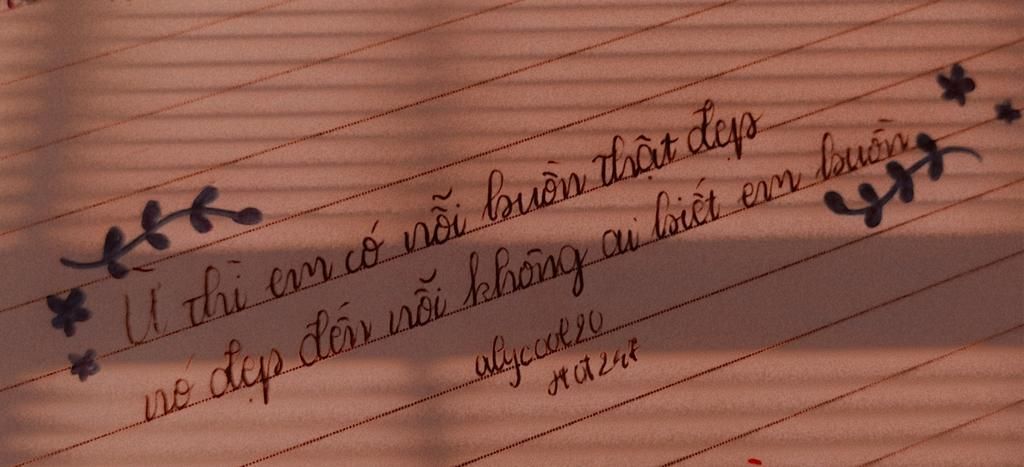 Ừ thì em có nỗi buồn thật đẹp
nó đẹp đến nỗi không ai biết em buồn